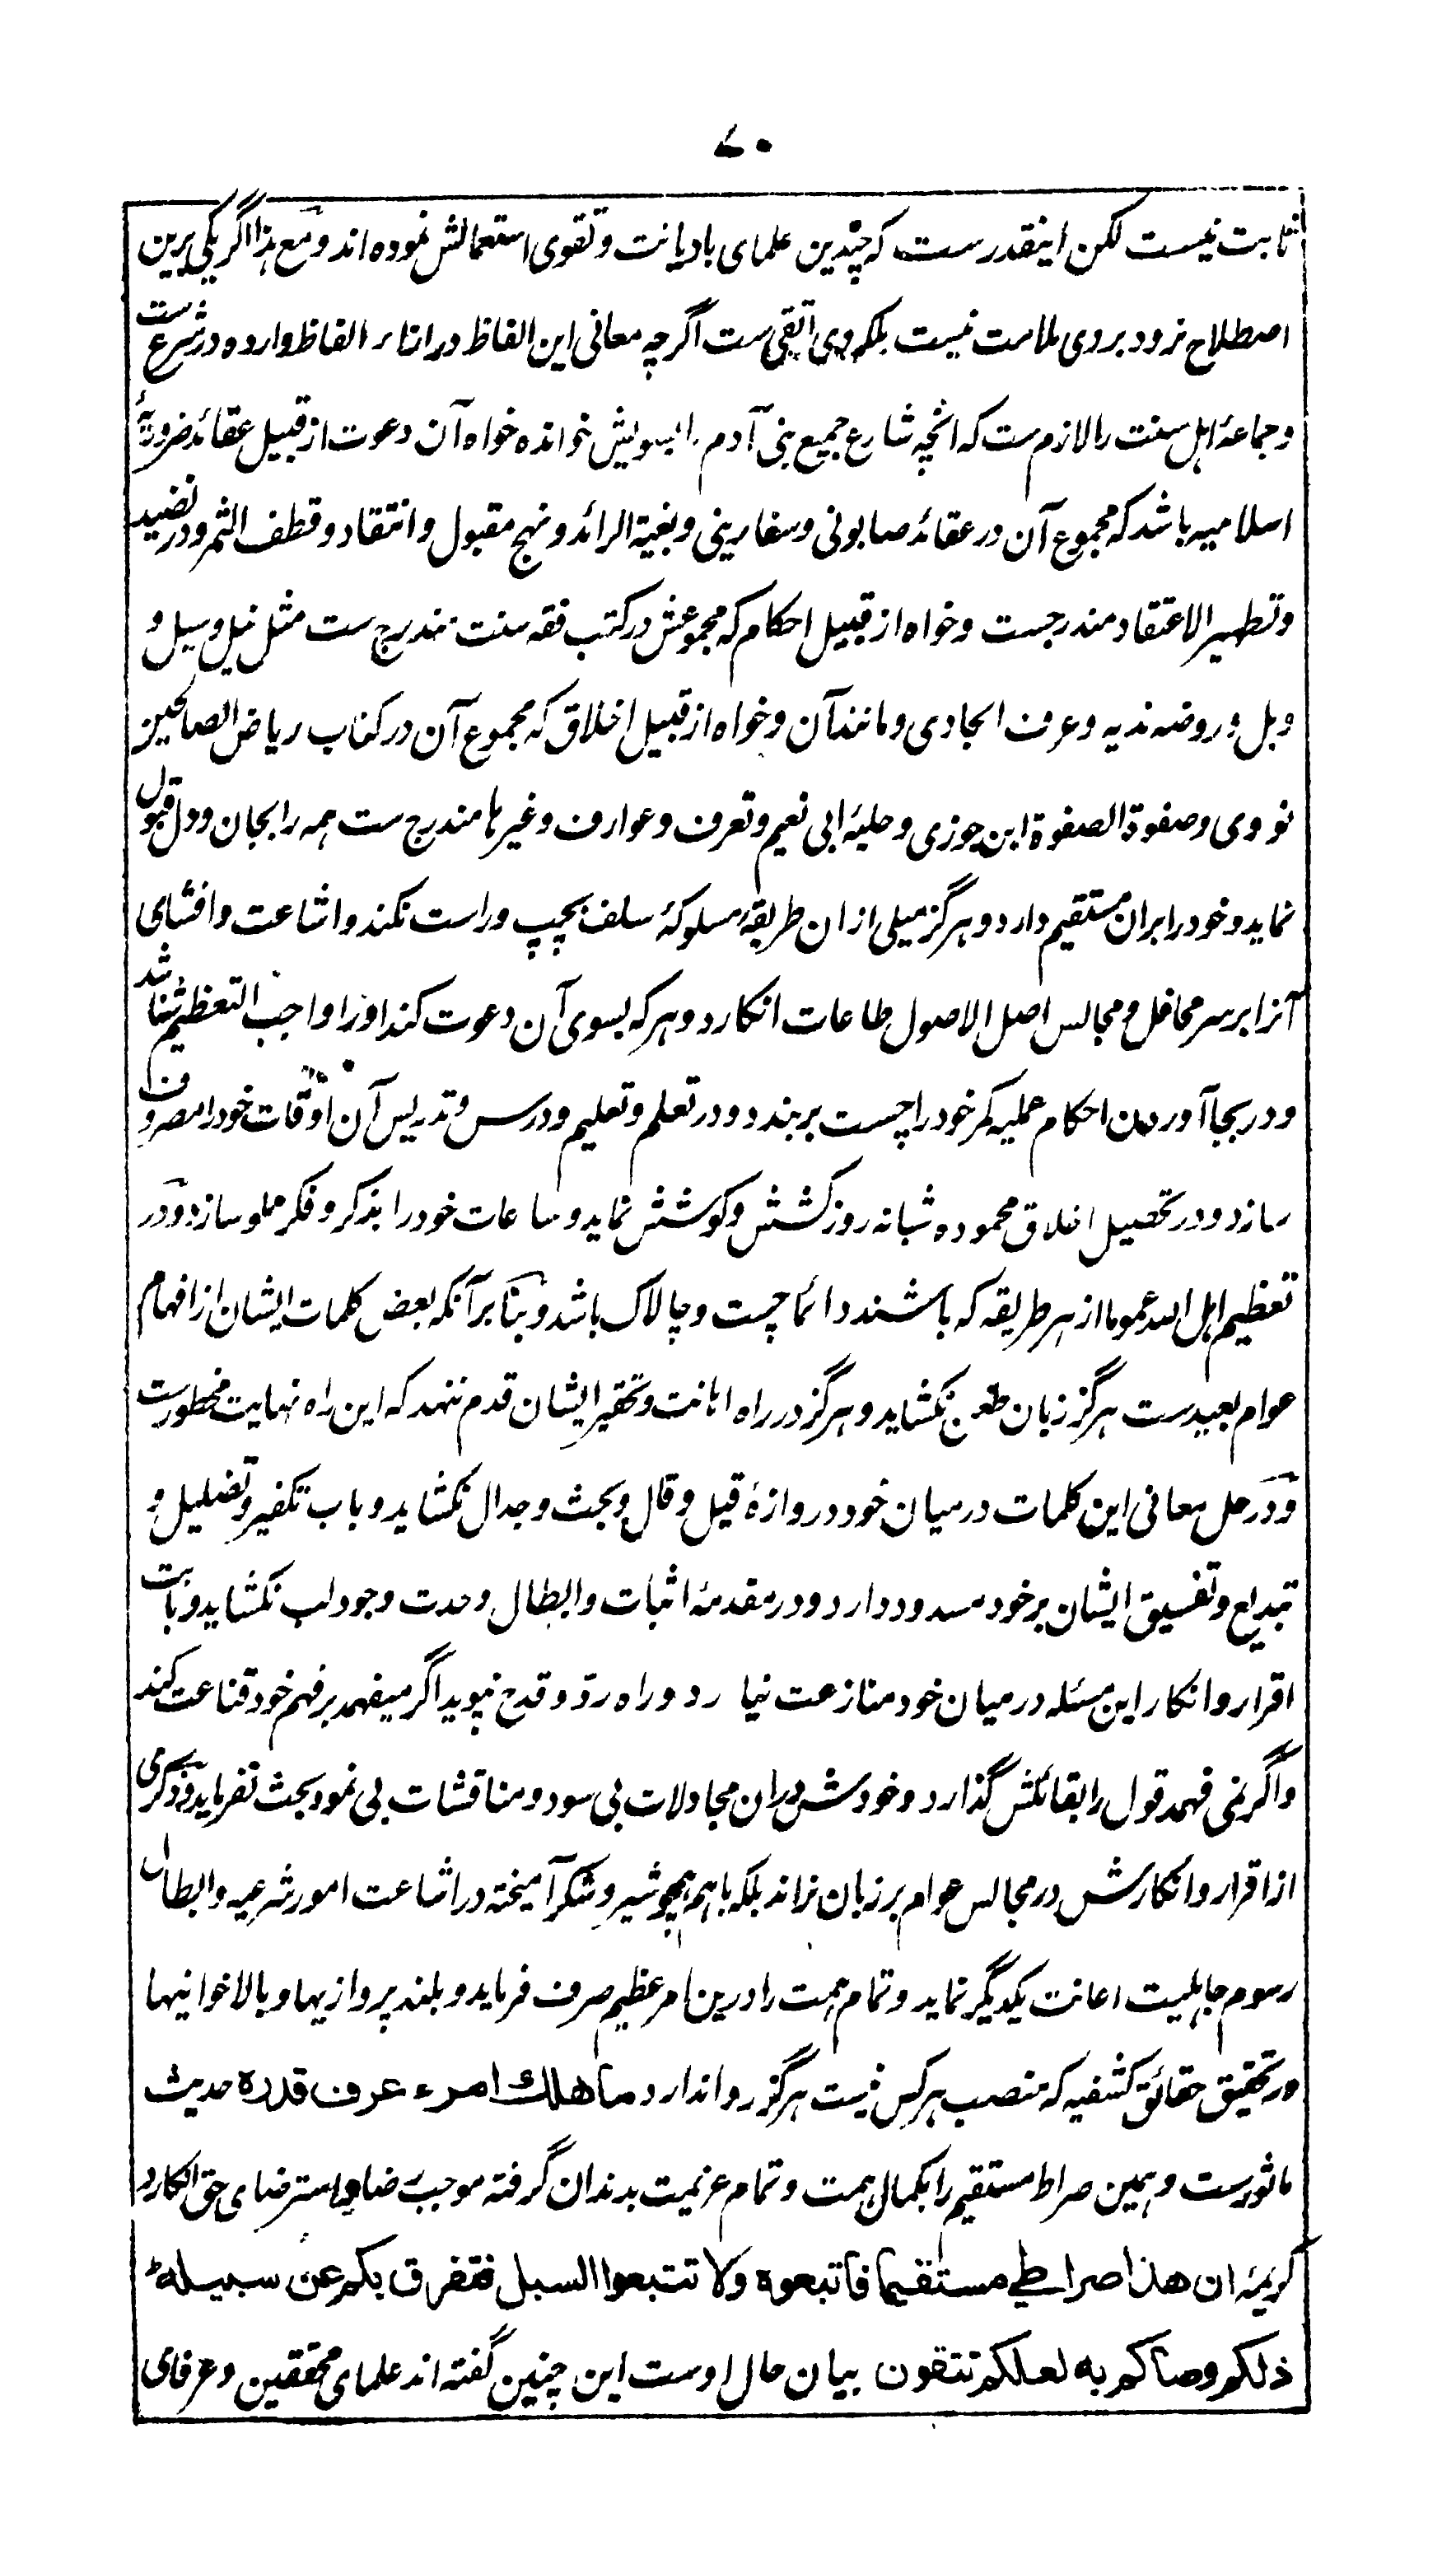 ۷۰
ثابت نیست لکن اینقدرست که چندین علمای بادیانت و تقوی استعمالش نموده اند و مع هذا اگر یکی برین
اصطلاح نرود بروی ملامت نیست بلکه وی اتقی ست اگرچه معانی این الفاظ در اثناء الفاظ وارده در شرع ست
و جماعهٔ اهل سنت را لازم ست که انچه شارع جمیع بنی آدم را بسویش خوانده خواه آن دعوت از قبیل عقائد ضروریهٔ
اسلامیه باشد که مجموع آن در عقائد صابونی و سفارینی و بغیة الرائد و نهج مقبول و انتقاد و قطف الثمر و در نضید
و تطهیر الاعتقاد مندرجست و خواه از قبیل احکام که مجموعش در کتب فقه سنت مندرج ست مثل نیل و سیل و
وبل و روضه ندیه و عرف الجادی و مانند آن و خواه از قبیل اخلاق که مجموع آن در کتاب ریاض الصالحین
نووی و صفوة الصفوة ابن جوزی و حلیهٔ ابی نعیم و تعرف و عوارف و غیرها مندرج ست همه را بجان و دل قبول
نماید و خود را بران مستقیم دارد و هرگز میلی ازان طریقهٔ مسلوکهٔ سلف بچپ و راست نکند و اشاعت و افشای
آنرا برسر محافل و مجالس اصل الاصول طاعات انگارد و هرکه بسوی آن دعوت کند او را واجب التعظیم شناسد
و در بجا آوردن احکام عملیه کمر خود را چست بربندد و در تعلم و تعلیم و درس و تدریس آن اوقات خود را مصروف
سازد و در تحصیل اخلاق محموده شبانه روز کشش و کوشش نماید و ساعات خود را بذکر و فکر مملو سازد و در
تعظیم اهل الله عموما از هر طریقه که باشند دائما چست و چالاک باشد و بنا بر آنکه بعض کلمات ایشان از افهام
عوام بعیدست هرگز زبان طعن نکشاید و هرگز در راه اهانت و تحقیر ایشان قدم ننهد که این راه نهایت مخطورست
و در حل معانی این کلمات درمیان خود دروازهٔ قیل و قال و بحث و جدال نکشاید و باب تکفیر و تضلیل و
تبدیع و تفسیق ایشان برخود مسدود دارد و در مقدمهٔ اثبات و ابطال وحدت وجود لب نکشاید و بابت
اقرار و انکار این مسئله درمیان خود منازعت نیارد و راه رد و قدح نپوید اگر میفهمد برفهم خود قناعت کند
و اگر نمی فهمد قول را بقائلش گذارد و خودش دران مجادلات بی سود و مناقشات بی نمود بحث نفرماید و ذکری
از اقرار و انکارش در مجالس عوام بر زبان نراند بلکه باهم همچو شیر و شکر آمیخته در اشاعت امور شرعیه و ابطال
رسوم جاهلیت اعانت یکدیگر نماید و تمام همت را درین امر عظیم صرف فرماید و بلند پروازیها و بالاخوانیها
در تحقیق حقائق کشفیه که منصب هرکس نیست هرگز روا ندارد ما هلك امرء عرف قدره حدیث
ماثورست و همین صراط مستقیم را بکمال همت و تمام عزیمت بدندان گرفته موجب رضا و استرضای حق انگارد
کریمهٔ ان هذا صراطی مستقیما فاتبعوه ولا تتبعوا السبل فتفرق بکم عن سبیله
ذلکم وصاکم به لعلکم تتقون بیان حال اوست این چنین گفته اند علمای محققین و عرفای